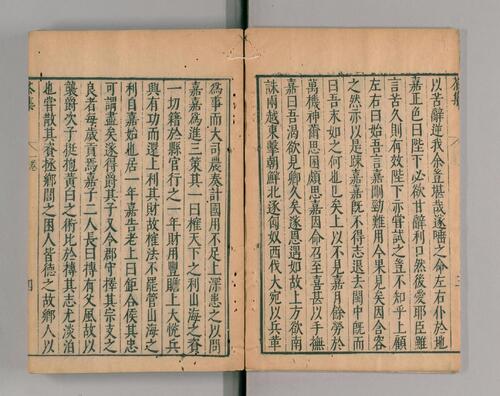 茶集
三
以苦辭逆我余豈堪哉遂唾之命左右仆於地
嘉正色曰陛下必欲甘辭利口然後愛耶臣雖
言苦久則有效陛下亦嘗試之豈不知乎上顧
左右曰始吾言嘉剛勁難用今果見矣因含容
之然亦以是疎嘉嘉既不得志退去閩中既而
曰吾未如之何也已矣上以不見嘉月餘勞於
萬機神薾思困頗思嘉因命召至喜甚以手撫
嘉曰吾渴欲見卿久矣遂恩遇如故上方欲南
誅兩越東擊朝鮮北逐匈奴西伐大宛以兵革
爲事而大司農奏計國用不足上深患之以問
嘉嘉爲進三策其一曰榷天下之利山海之資
一切籍於縣官行之一年財用豐贍上大悅兵
興有功而還上利其財故榷法不罷管山海之
利自嘉始也居一年嘉告老上曰鉅合侯其忠
可謂盡矣遂得爵其子又令郡守擇其宗支之
良者每歲貢焉嘉子二人長曰摶有父風故以
襲爵次子挺抱黃白之術比於摶其志尤淡泊
也嘗散其資拯鄉閭之困人皆德之故鄉人以
茶集
卷
四